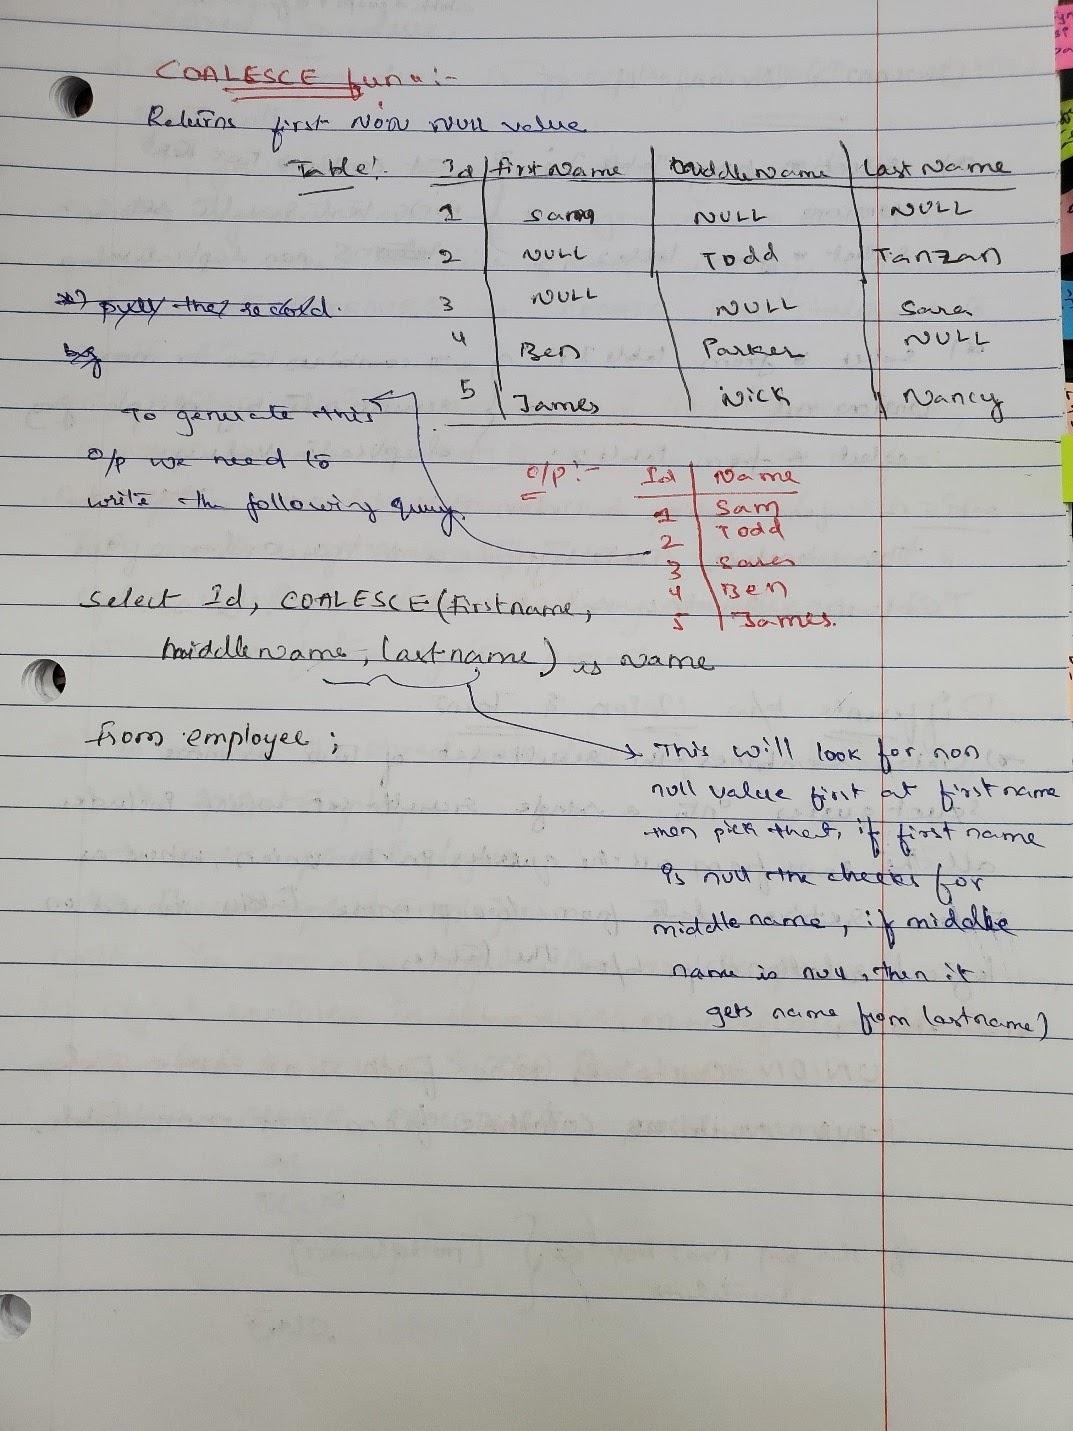 COALESCE func:-
Returns first Non NULL value
Table:- Id firstName middleName lastName
1 Sam NULL NULL
2 NULL Todd Tanzan
3 NULL NULL Sara
4 Ben Parker NULL
5 James Nick Nancy
*) pull the record.
To generate this
o/p we need to
write the following query.
o/p:- Id Name
1 Sam
2 Todd
3 Sara
4 Ben
5 James.
Select Id, COALESCE(firstname,
middlename, lastname) is name
from employee;
This will look for non
null value first at firstname
then pick that, if first name
is null the checks for
middle name, if middle
name is null, then it
gets name from lastname)